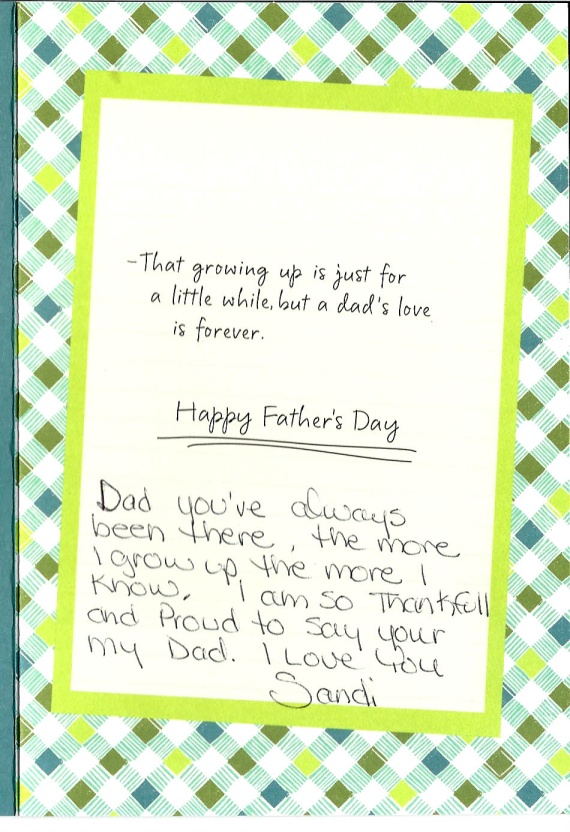 -That growing up is just for
a little while, but a dad's love
is forever.
Happy Father's Day
Dad you've always
been there, the more
I grow up the more I
know. I am so Thankfull
and Proud to say your
my Dad. I Love You
Sandi